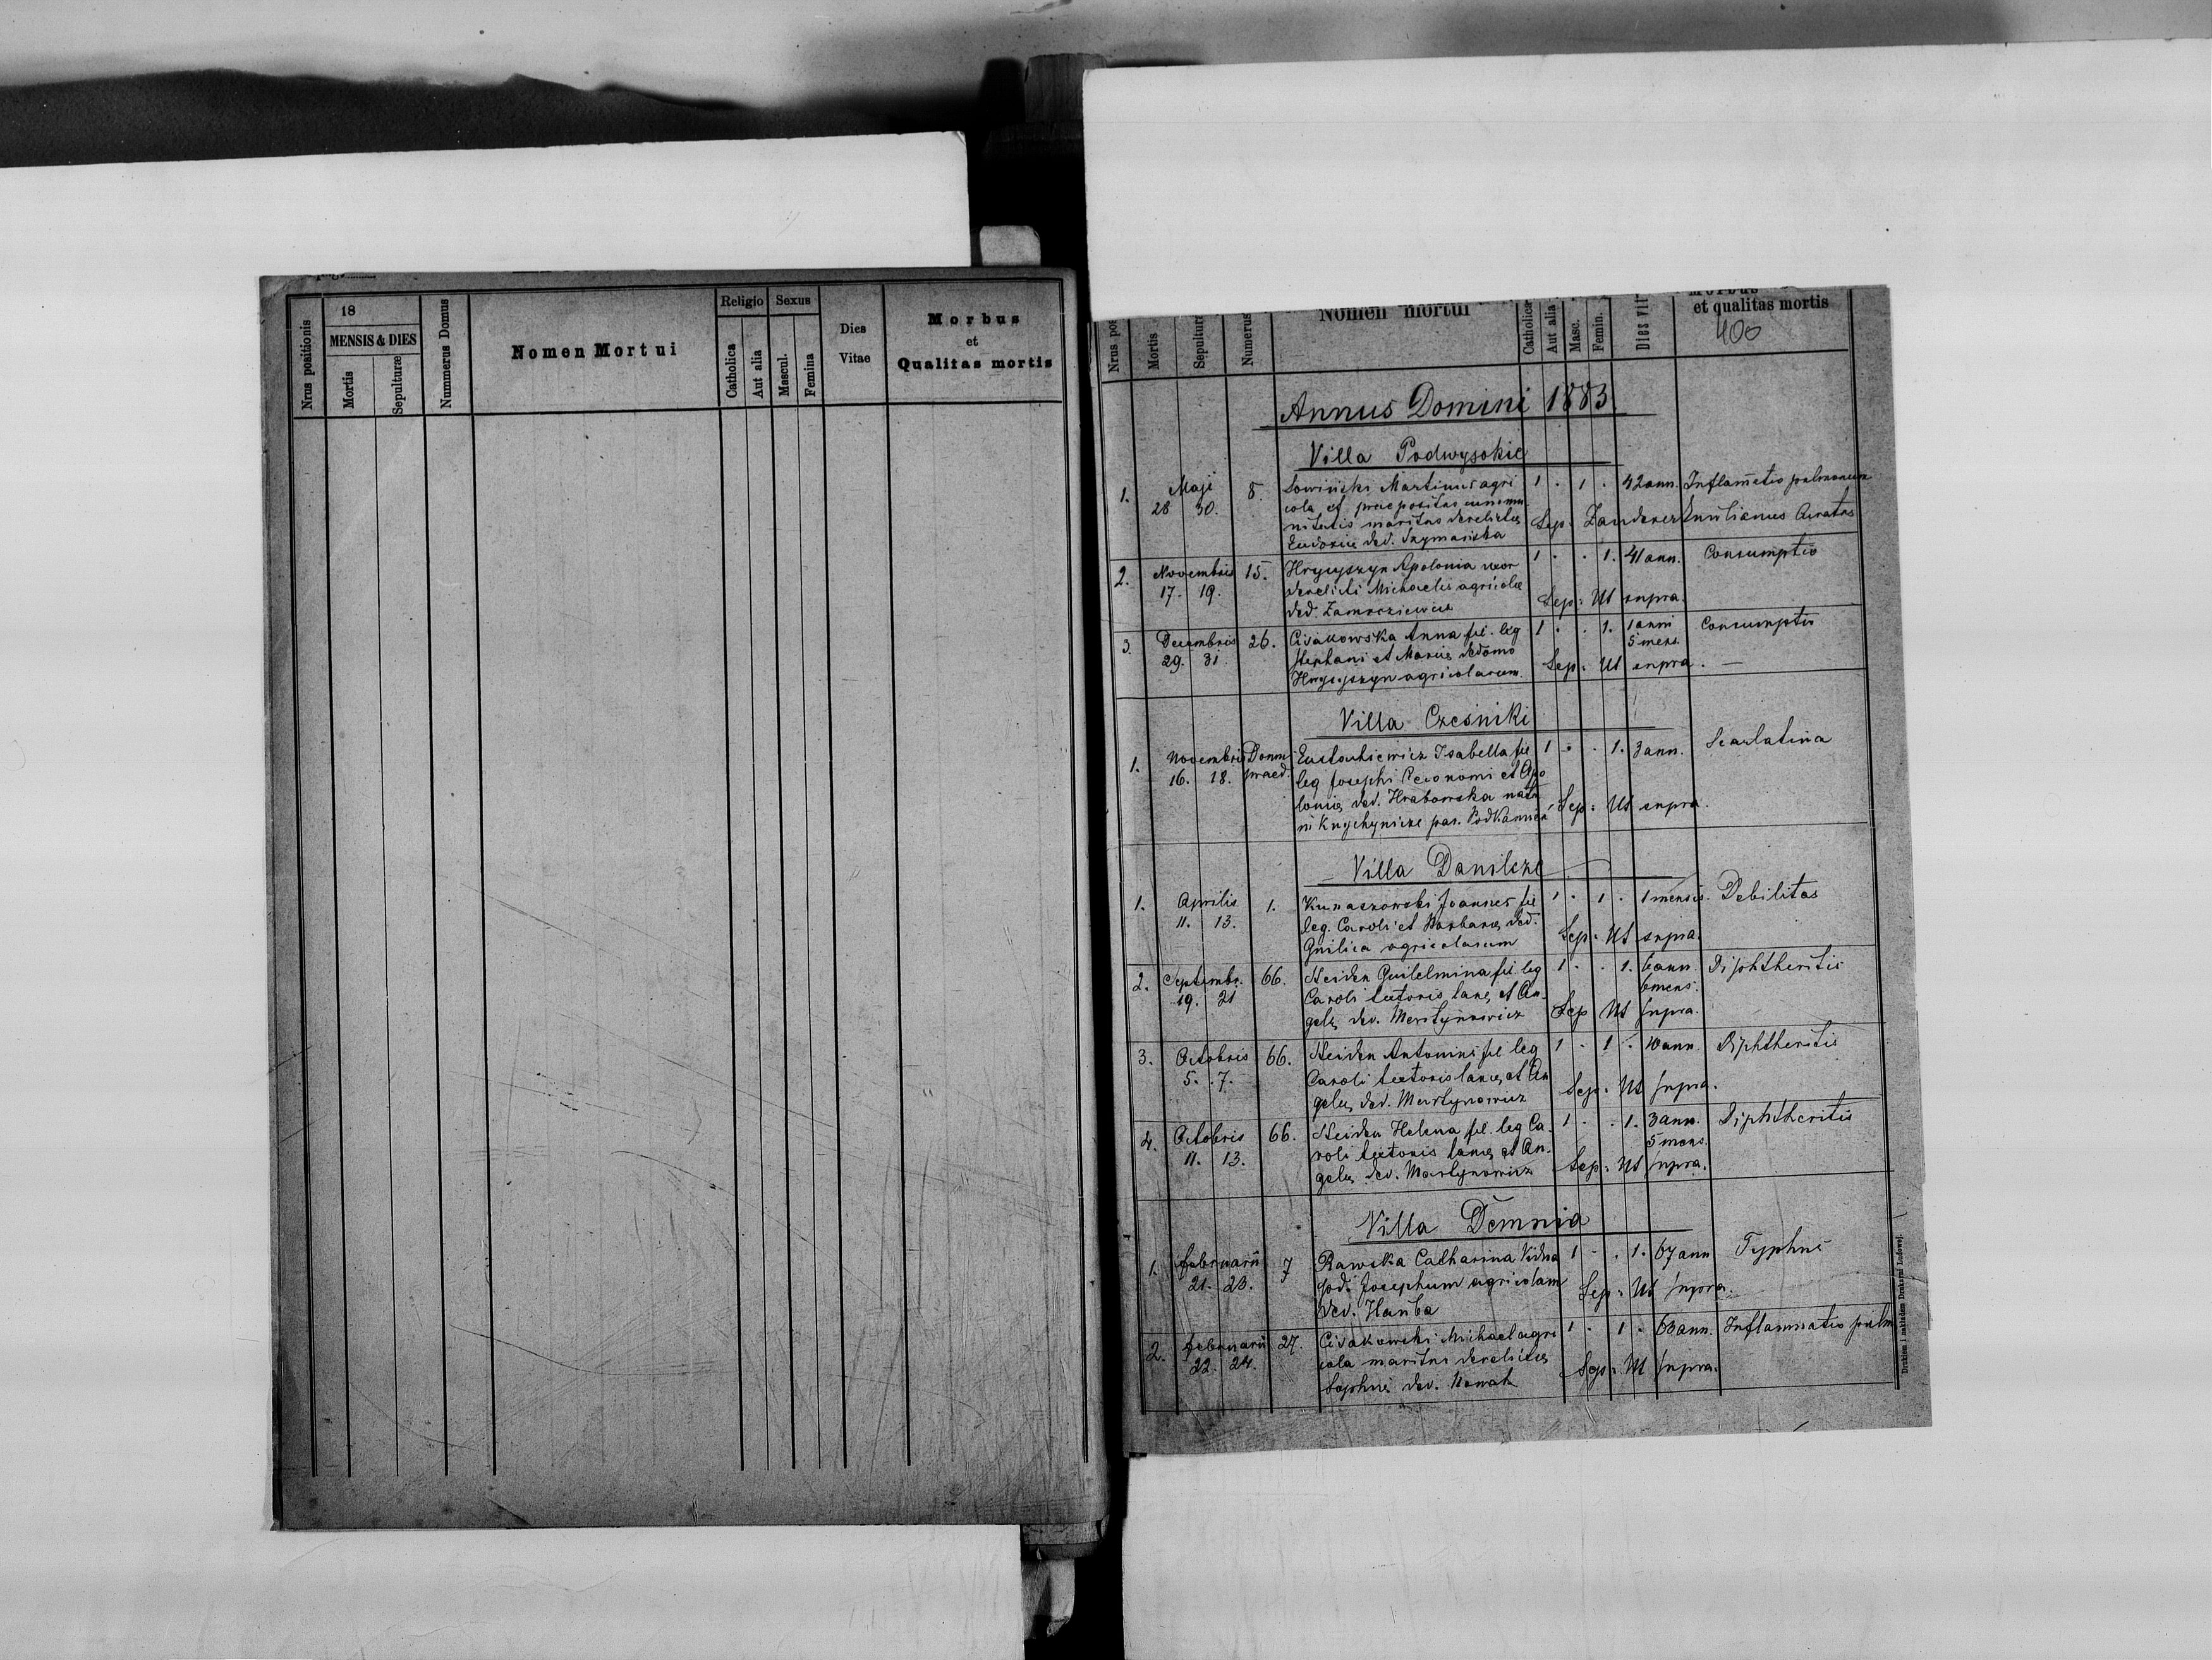 Nrus positionis
18
MENSIS & DIES
Mortis
Sepulturæ
Nummerus Domus
Nomen Mortui
Religio
Catholica
Aut alia
Sexus
Mascul.
Femina
Dies
Vitae
Morbus
et
Qualitas mortis
Nrus pos
Mortis
Sepultura
Numerus
Nomen mortui
Catholica
Aut alia
Masc.
Femin.
Dies vit
Morbus
et qualitas mortis
400
Annus Domini 1883
Villa Podwysokie
1. Maji 8. Martinus agri 1 . 1 . 42 ann. Inflam̄atio pulmonum
28 30. cola et praepositus
nitatis maritus derelictus Sep:
Eudoxie ded. Szymańska
2. Novembris 15. Hrycyszyn Apolonia uxor 1 . . 1. 41 ann. Consumptio
17. 19. derelicti Michaelis agricolæ
ded. Sep: Ut supra.
3. Decembris 26. Cisakowska Anna fil. leg 1 . . 1. 1 anni Consumptio
29. 31. Stephani et Mariæ de domo 5 mens.
Hrycyszyn agricolarum. Sep: Ut supra. —
Villa Czesniki
1. Novembris Domin. Eustachiewicz Isabella fil 1 . . 1. 3 ann. Scarlatina
16. 18. praed. leg Josephi et Apo
loniæ ded. Hrabowska nata
in Knyhynicze par. Podkamień Sep: Ut supra.
Villa Danilcze
1. Aprilis 1. Kunaszowski Joannes fil 1 . 1 . 1 mensis. Debilitas
11. 13. leg. Caroli et Barbaræ ded.
Gnilica agricolarum Sep: Ut supra.
2. Septembr. 66. Heiden Guilelmina fil leg 1 . . 1. 6 ann. Diphtheritis
19. 21 Caroli et An 6 mens.
gelæ ded. Martynowicz Sep Ut supra.
3. Octobris 66. Heiden Antonini fil leg 1 . 1 . 10 ann. Diphtheritis
5. 7. Caroli et An
gelæ ded. Martynowicz Sep: Ut supra.
4. Octobris 66. Heiden Helena fil. leg Ca 1 . . 1. 3 ann. Diphtheritis
11. 13. roli et An. 5 mens.
gelæ ded. Martynowicz Sep: Ut supra.
Villa Demnia
1. Februarii 7 Rawska Catharina Vidua 1 . . 1. 67 ann Typhus
21. 23. Josephum agricolam
ded. Hanba Sep: Ut supra.
2. Februarii 27. Cisakowski Michael agri 1 . 1 . 63 ann. Inflammatio pulm
22. 24. cola maritus derelictus
Sophiæ ded. Nowak Sep: Ut supra.
Drukiem i nakładem Drukarni Ludowej.